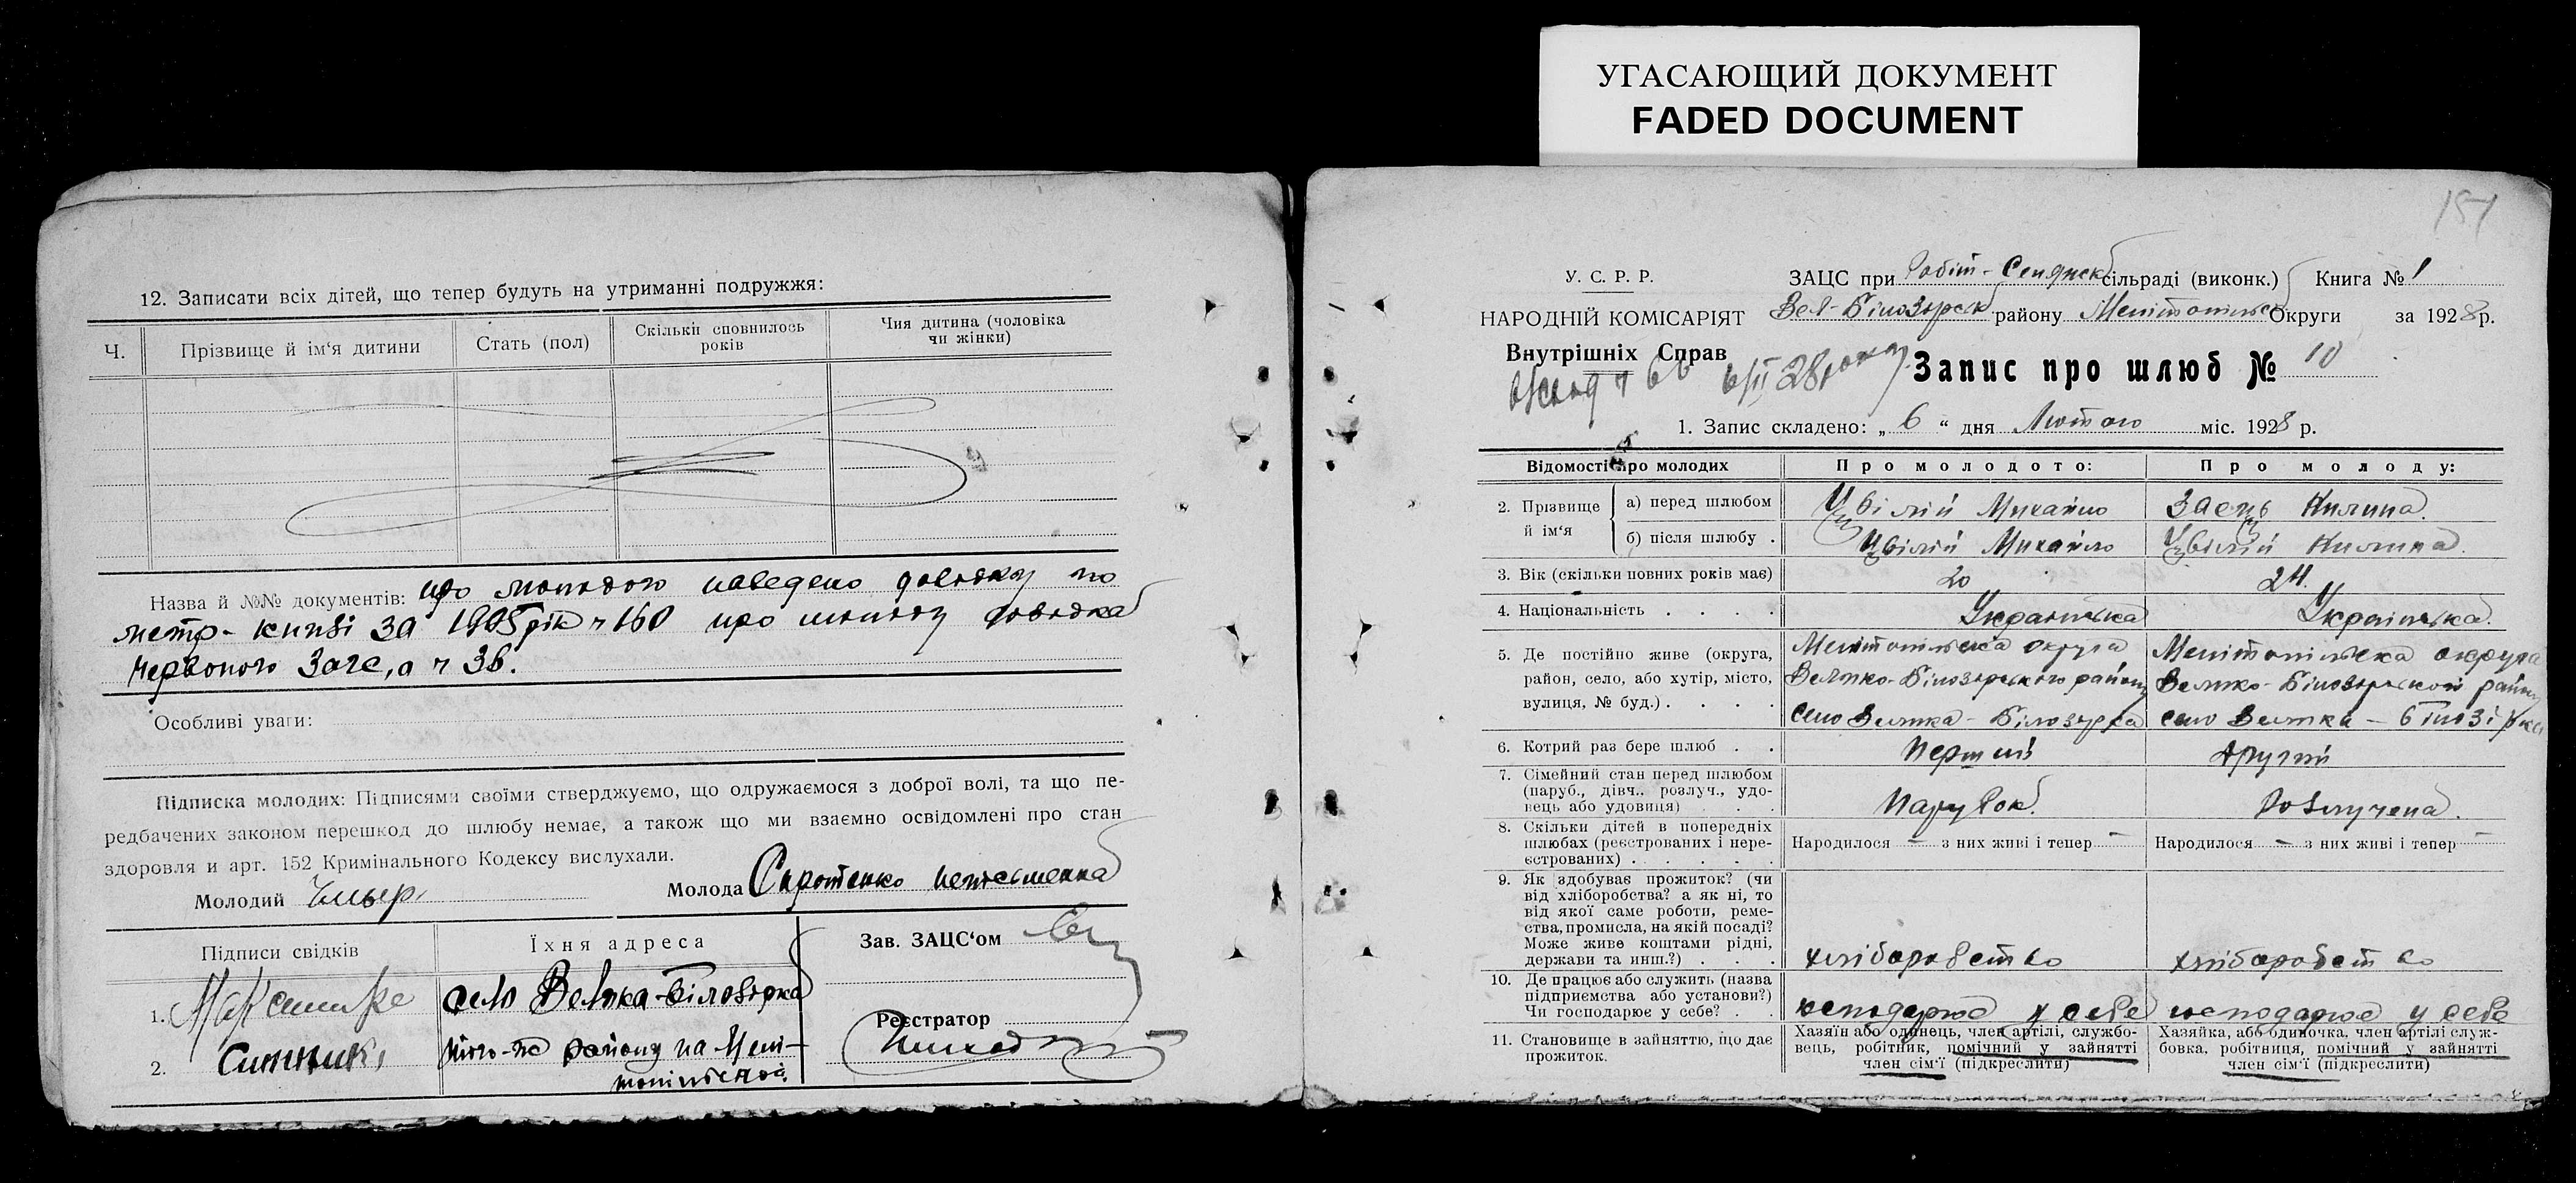 УГАСАЮЩИЙ ДОКУМЕНТ
FADED DOCUMENT
12. Записати всіх дітей, що тепер будуть на утриманні подружжя:
Ч. Прізвище й ім‘я дитини Стать (пол) Скільки сповнилось років Чия дитина (чоловіка чи жінки)
Назва й №№ документів: про молодого наведено довідку по
метр- книзі за 1905 рік ч 160 про молоду довідка
Червоного Загс,а ч 36.
Особливі уваги:
Підписка молодих: Підписями своїми стверджуємо, що одружаємося з доброї волі, та що пе-
редбачених законом перешкод до шлюбу немає, а також що ми взаємно освідомлені про стан
здоровля и арт. 152 Кримінального Кодексу вислухали.
Молодий Молода Сиротенко неписьменна
Підписи свідків Їхня адреса Зав. ЗАЦС‘ом
1. село Велика-Білозірка
Реєстратор
2. того-ж району на Мелі-
топільскої.
151
У. С. Р. Р. ЗАЦС при сільраді (виконк.) Книга № 1
НАРОДНІЙ КОМІСАРІЯТ Вел-Білозірськ району Мелітопільс Округи за 1928 р.
Внутрішніх Справ
6/II 28 року Запис про шлюб № 10
1. Запис складено: „ 6 “ дня Лютого міс. 1928 р.
Відомості про молодих Про молодого: Про молоду:
2. Прізвище й ім‘я
а) перед шлюбом Цвілій Михайло Заець Килина
б) після шлюбу . Цвілій Михайло Цвілій Килина
3. Вік (скільки повних років має) 20 24.
4. Національність . . . . Українська Українська
5. Де постійно живе (округа, Мелітопільска округа Мелітопільска округа
район, село, або хутір, місто, Велико-Білозірського району Велико-Білозірськой району
вулиця, № буд.) . . . . село Велика-Білозірка село Велика-Білозірка
6. Котрий раз бере шлюб . . Перший Другий
7. Сімейний стан перед шлюбом
(паруб., дівч.. розлуч., удо-
вець або удовиця) . . Парубок Розлучена.
8. Скільки дітей в попередніх
шлюбах (реєстрованих і нере- Народилося — з них живі і тепер — Народилося — з них живі і тепер —
єстрованих) . . . . .
9. Як здобуває прожиток? (чи
від хліборобства? а як ні, то
від якої саме роботи, реме-
ства, промисла, на якій посаді?
Може живе коштами рідні,
держави та инш.?) . . . хліборобство хліборобство
10. Де працює або служить (назва
підприємства або установи?)
Чи господарює у себе? . . господарює у себе господарює у себе
11. Становище в зайняттю, що дає
прожиток.
Хазяїн або одинець, член артілі, службо-
вець, робітник, помічний у зайнятті
член сім‘ї (підкреслити)
Хазяйка, або одиночка, член артілі служ-
бовка, робітниця, помічний у зайнятті
член сім‘ї (підкреслити)